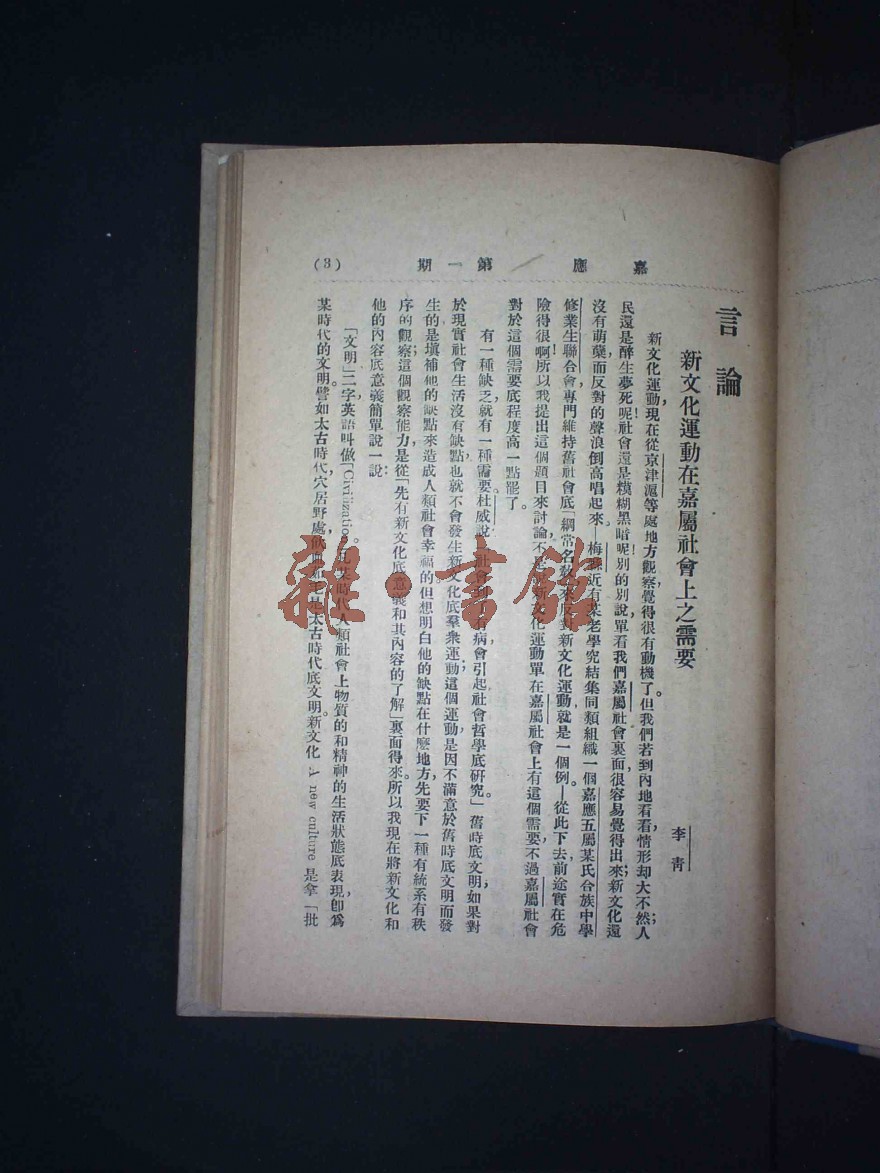 嘉應 第一期 (3)
言論
新文化運動在嘉屬社會上之需要
李青
新文化運動,現在從京津滬等處地方觀察,覺得很有動機了。但我們若到內地看看,情形却大不然;人
民還是醉生夢死呢!社會還是糢糊黑暗呢!別的別說,單看我們嘉屬社會裏面,很容易覺得出來;新文化還
沒有萌蘗,而反對的聲浪倒高唱起來。—梅縣近有某老學究結集同類組織一個嘉應五屬某氏合族中學
修業生聯合會,專門維持舊社會底「綱常名教」來反對新文化運動,就是一個例。—從此下去,前途實在危
險得很啊!所以我提出這個題目來討論,不是說新文化運動單在嘉屬社會上有這個需要,不過嘉屬社會
對於這個需要底程度高一點罷了。
有一種缺乏,就有一種需要。杜威說「社會到了有病,會引起社會哲學底研究。」舊時底文明,如果對
於現實社會生活沒有缺點,也就不會發生新文化底羣衆運動;這個運動,是因不滿意於舊時底文明而發
生的,是填補他的缺點來造成人類社會幸福的。但想明白他的缺點在什麽地方,先要下一種有統系有秩
序的觀察;這個觀察能力,是從「先有新文化底意義和其內容的了解」裏面得來。所以我現在將新文化和
他的內容底意義簡單說一說:
「文明」二字,英語叫做「Civilization」。凡某時代人類社會上物質的和精神的生活狀態底表現,卽爲
某時代的文明。譬如太古時代,穴居野處,飲血茹毛,是太古時代底文明。新文化 A new culture 是拿「批
雜·書館